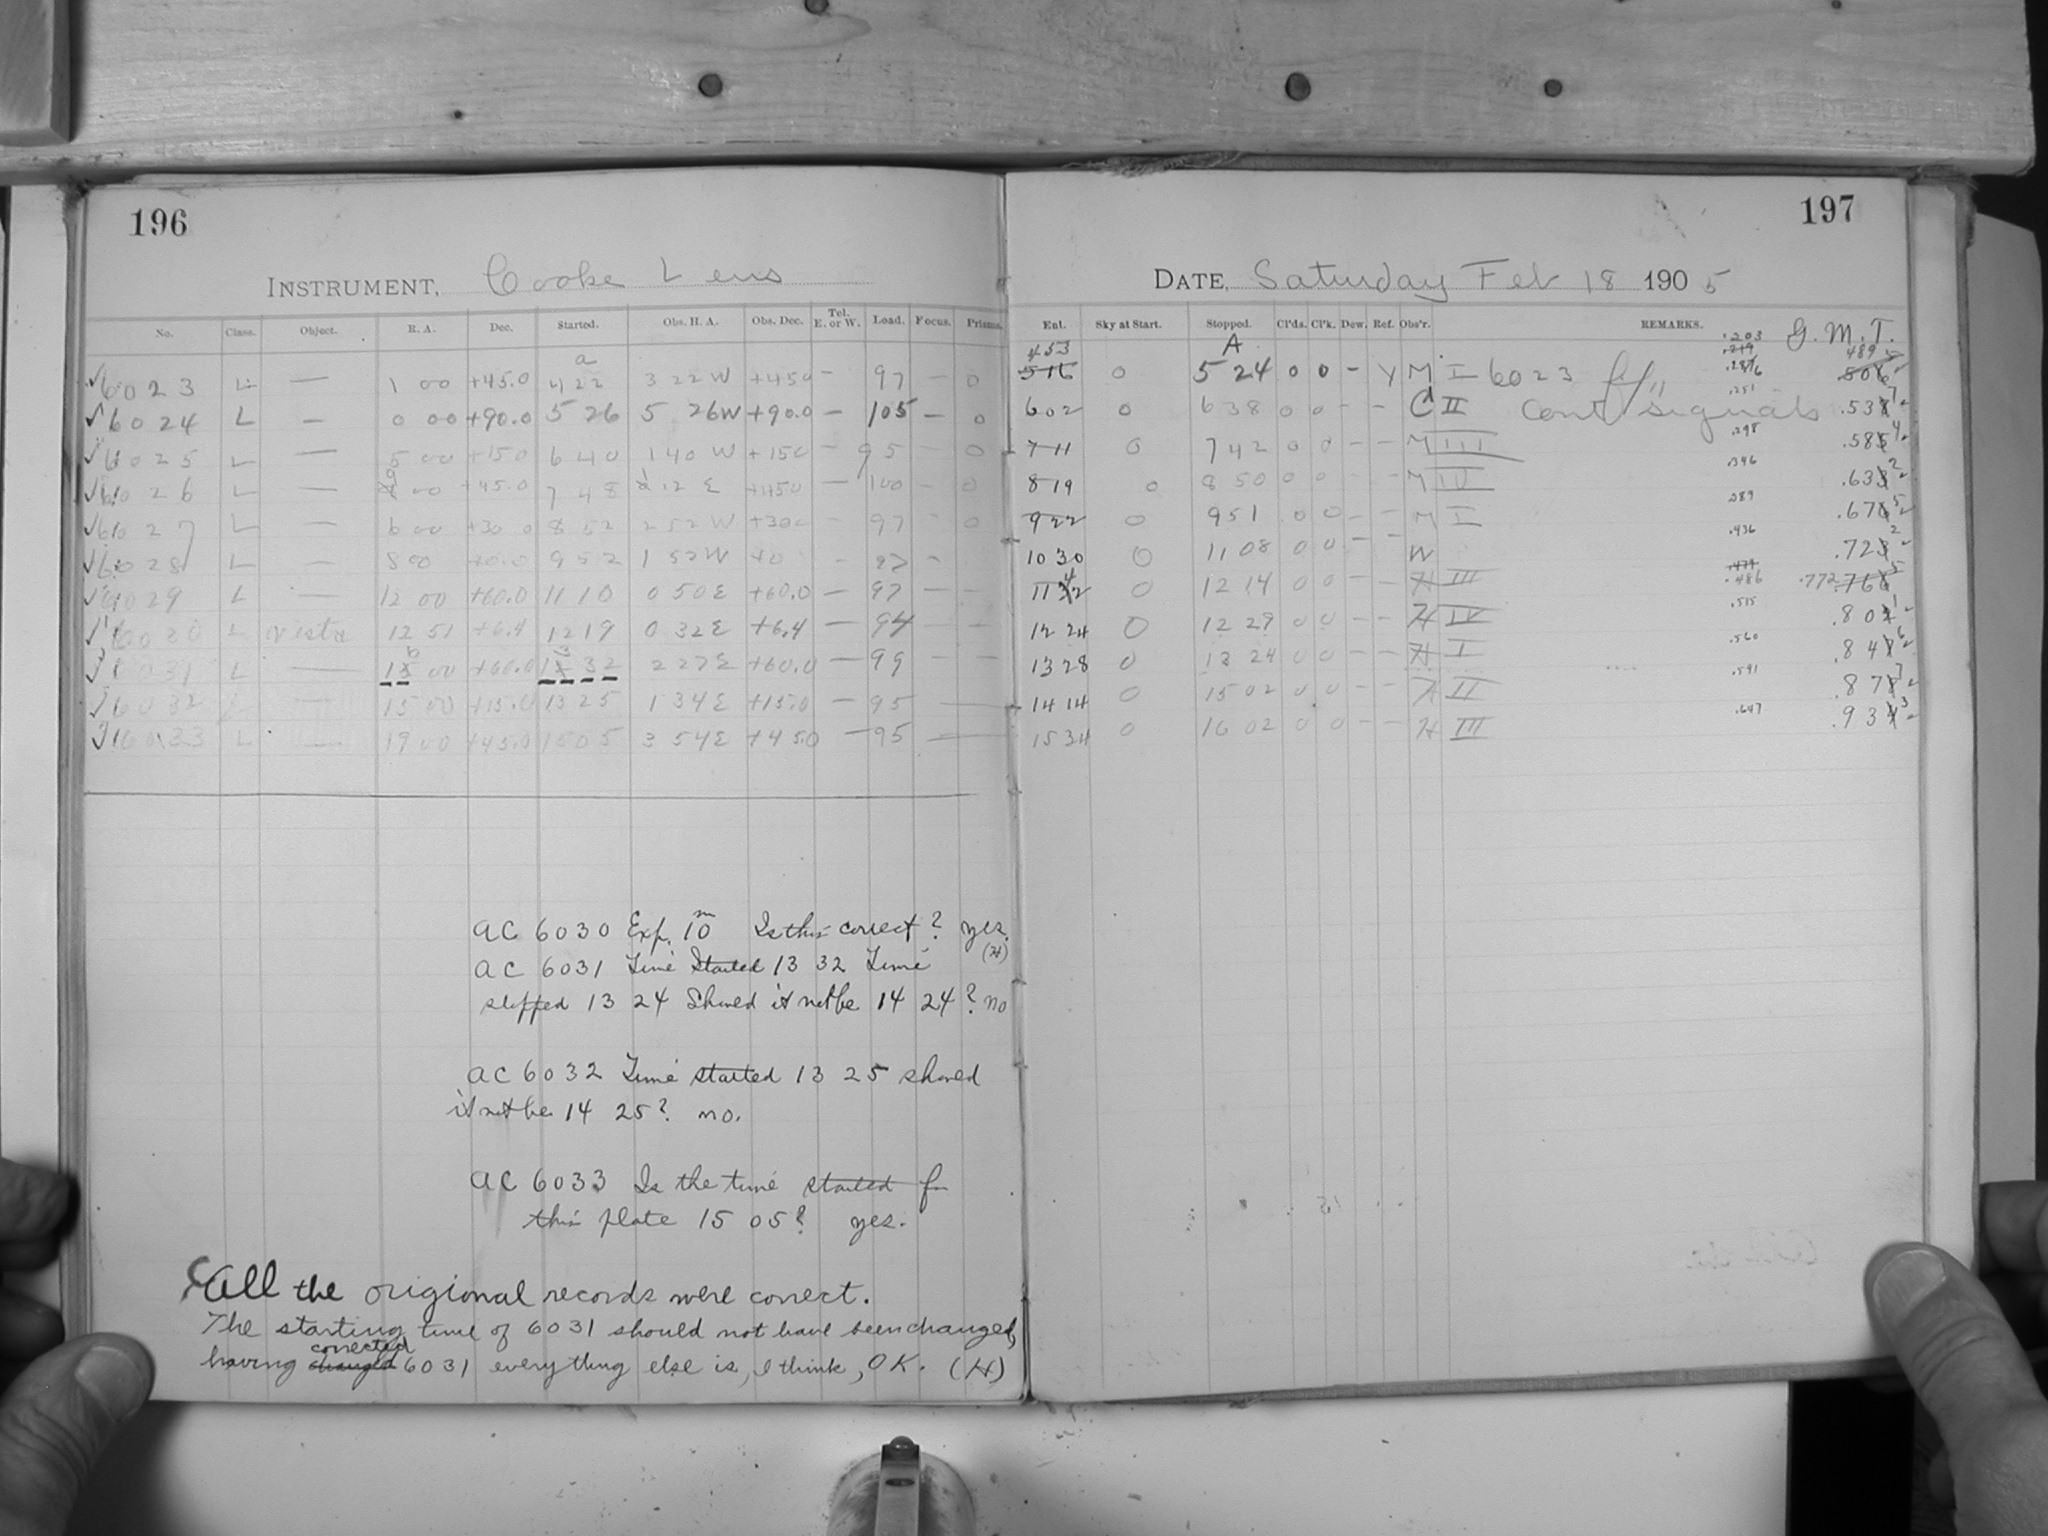 196
INSTRUMENT, Cooke Lens
No. Class. Object. R. A. Dec. Started. Obs. H. A. Obs. Dec. Tel. E. or W. Load. Focus. Prisms.
a
✓6023 L — 1 00 +45.0 4 22 3 22 W +450 — 97 — 0
✓6024 L — 0 00 +90.0 5 26 5 26W +90.0 — 105 — 0
✓6025 L — 5 00 +150 6 40 1 40 W +150 — 95 — 0
✓6026 L — 9 00 +45.0 7 48 1 12 E +450 — 100 — 0
✓6027 L — 6 00 +30 0 8 52 2 52 W +300 — 97 — 0
✓6028 L — 8 00 +0.0 9 52 1 52W +0 — 97 —
✓6029 L — 12 00 +60.0 11 10 0 50E +60.0 — 97 — —
✓6030 L Vista 12 51 +6.4 12 19 0 32E +6.4 — 94 — —
6031 L — 00 +60.0 32 2 27E +60.0 — 99 — —
6032 L — 15 00 +15.0 13 25 1 34E +15.0 — 95 —
6033 L — 19 00 +45.0 15 05 3 54E +45.0 — 95 —
AC 6030 Exp. 10m Is this correct? yes.
(H)
AC 6031 Time Started 13 32 Time
stopped 13 24 Should it not be 14 24? no
AC 6032 Time started 13 25 should
it not be 14 25? no.
AC 6033 Is the time started for
this plate 15 05? yes.
All the origional records were correct.
The starting time of 6031 should not have been changed,
having changed corrected 6031 everything else is, I think, OK. (H)
197
DATE, Saturday Feb 18 1905
Ent. Sky at Start. Stopped. Cl'ds. Cl'k. Dew. Ref. Obs'r. REMARKS. G. M. T.
453 A .203
516 0 5 24 0 0 — Y M I 6023
602 0 6 38 0 0 — — C II Cont signals .251
7 11 0 7 42 0 0 — — M III .298
8 19 0 8 50 0 0 — — M IV .346
9 22 0 9 51 0 0 — — M I .389
10 30 0 11 08 0 0 — — W .436
0 12 14 0 0 — — H III .486 .772
12 24 0 12 29 0 0 — — H IV .515
13 28 0 13 24 0 0 — — H I .560
14 14 0 15 02 0 0 — — H II .591
15 34 0 16 02 0 0 — — H III .647